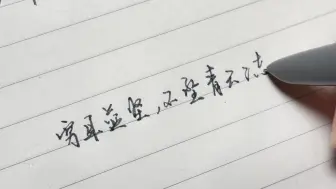 穷且益坚,不坠青云之志